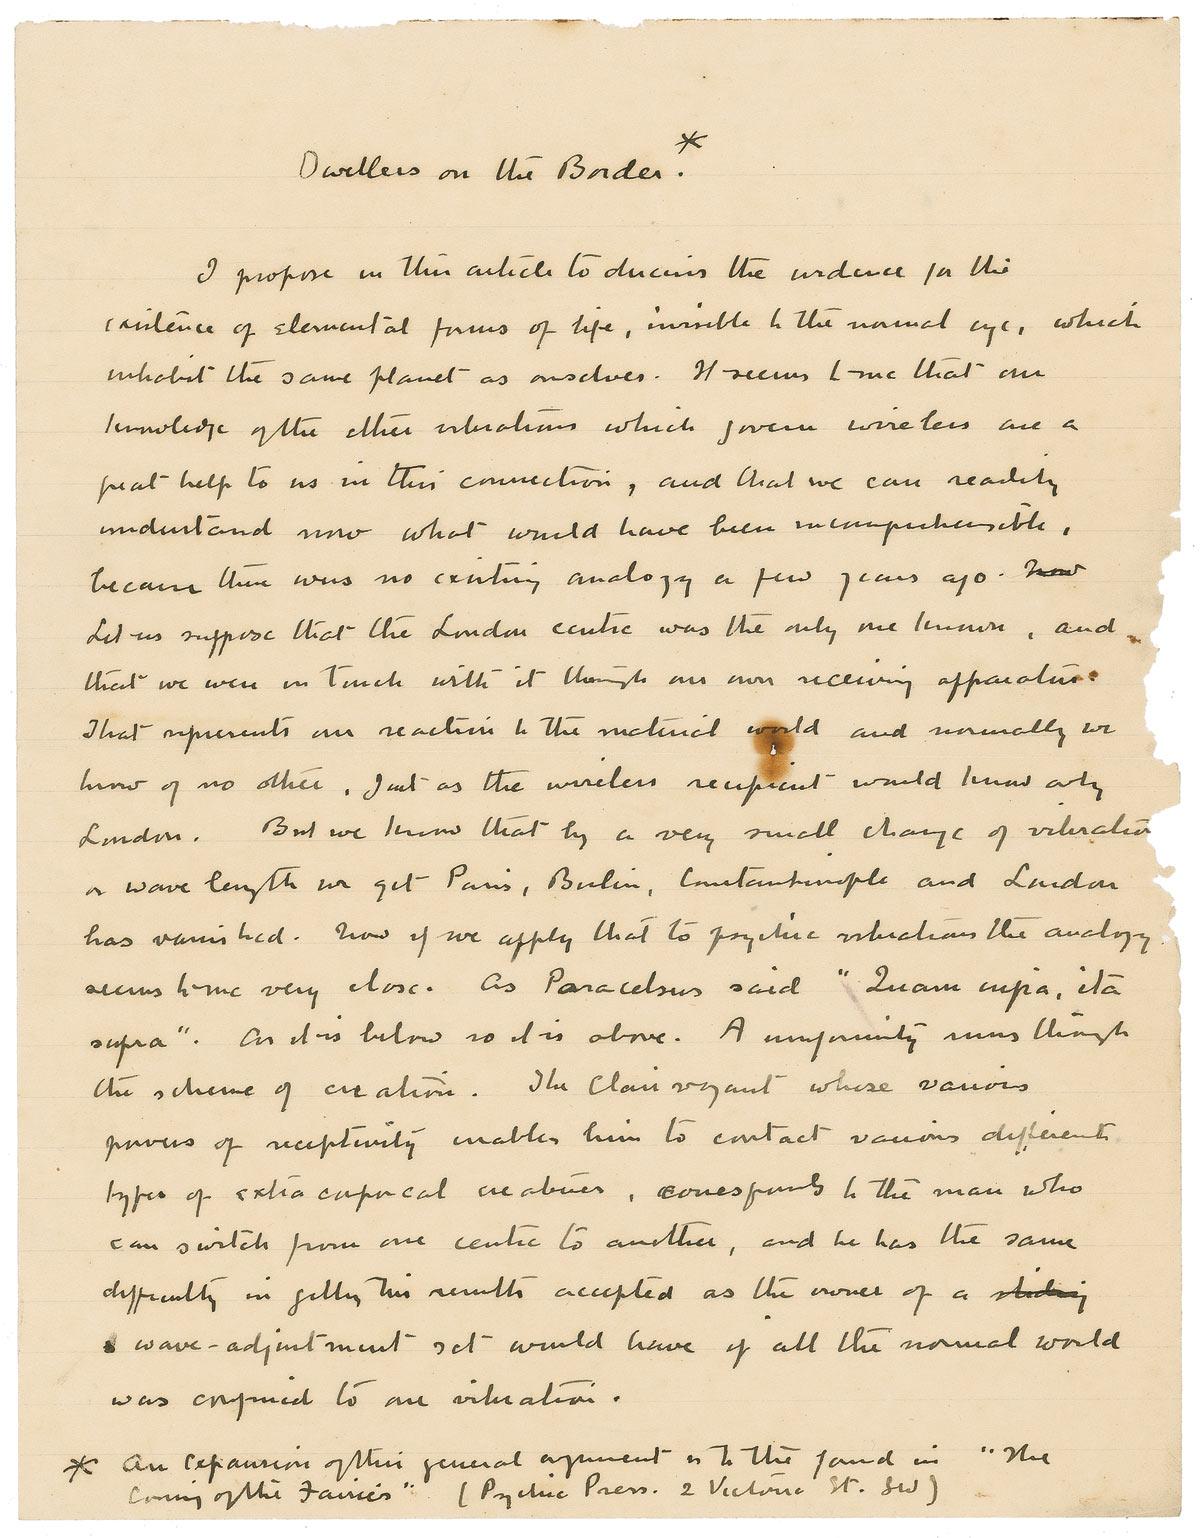 Dwellers on the Border.*
I propose in this article to discuss the evidence for the
existence of elemental forms of life, invisible to the normal eye, which
inhabit the same planet as ourselves. It seems to me that our
knowledge of the ether vibrations which govern wireless are a
great help to us in this connection, and that we can readily
understand now what would have been incomprehensible,
because there was no existing analogy a few years ago. Now
Let us suppose that the London centre was the only one known, and
that we were in touch with it through our own receiving apparatus.
That represents our reaction to the material world and normally we
know of no other, Just as the wireless recipient would know only
London. But we know that by a very small change of vibration
or wave length we get Paris, Berlin, Constantinople and London
has vanished. Now if we apply that to psychic vibrations the analogy
seems to me very close. As Paracelsus said "Quam infra, ita
supra". As it is below so it is above. A uniformity runs through
the scheme of creation. The Clairvoyant whose various
powers of receptivity enables him to contact various different
types of extra corporeal creatures, corresponds to the man who
can switch from one centre to another, and he has the same
difficulty in getting his results accepted as the owner of a sliding
wave-adjustment set would have if all the normal world
was confined to one vibration.
* An expansion of this general argument is to the found in "The
Coming of the Fairies" (Psychic Press. 2 Victoria St. SW)